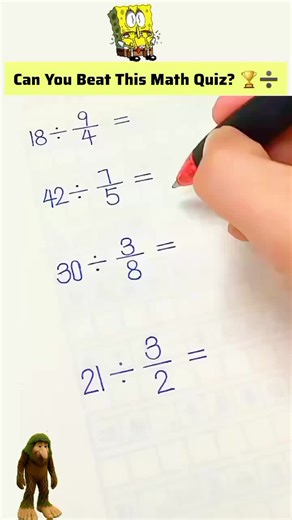 Can You Beat This Math Quiz? 🏆➗
18 ÷ 9/4 =
42 ÷ 7/5 =
30 ÷ 3/8 =
21 ÷ 3/2 =